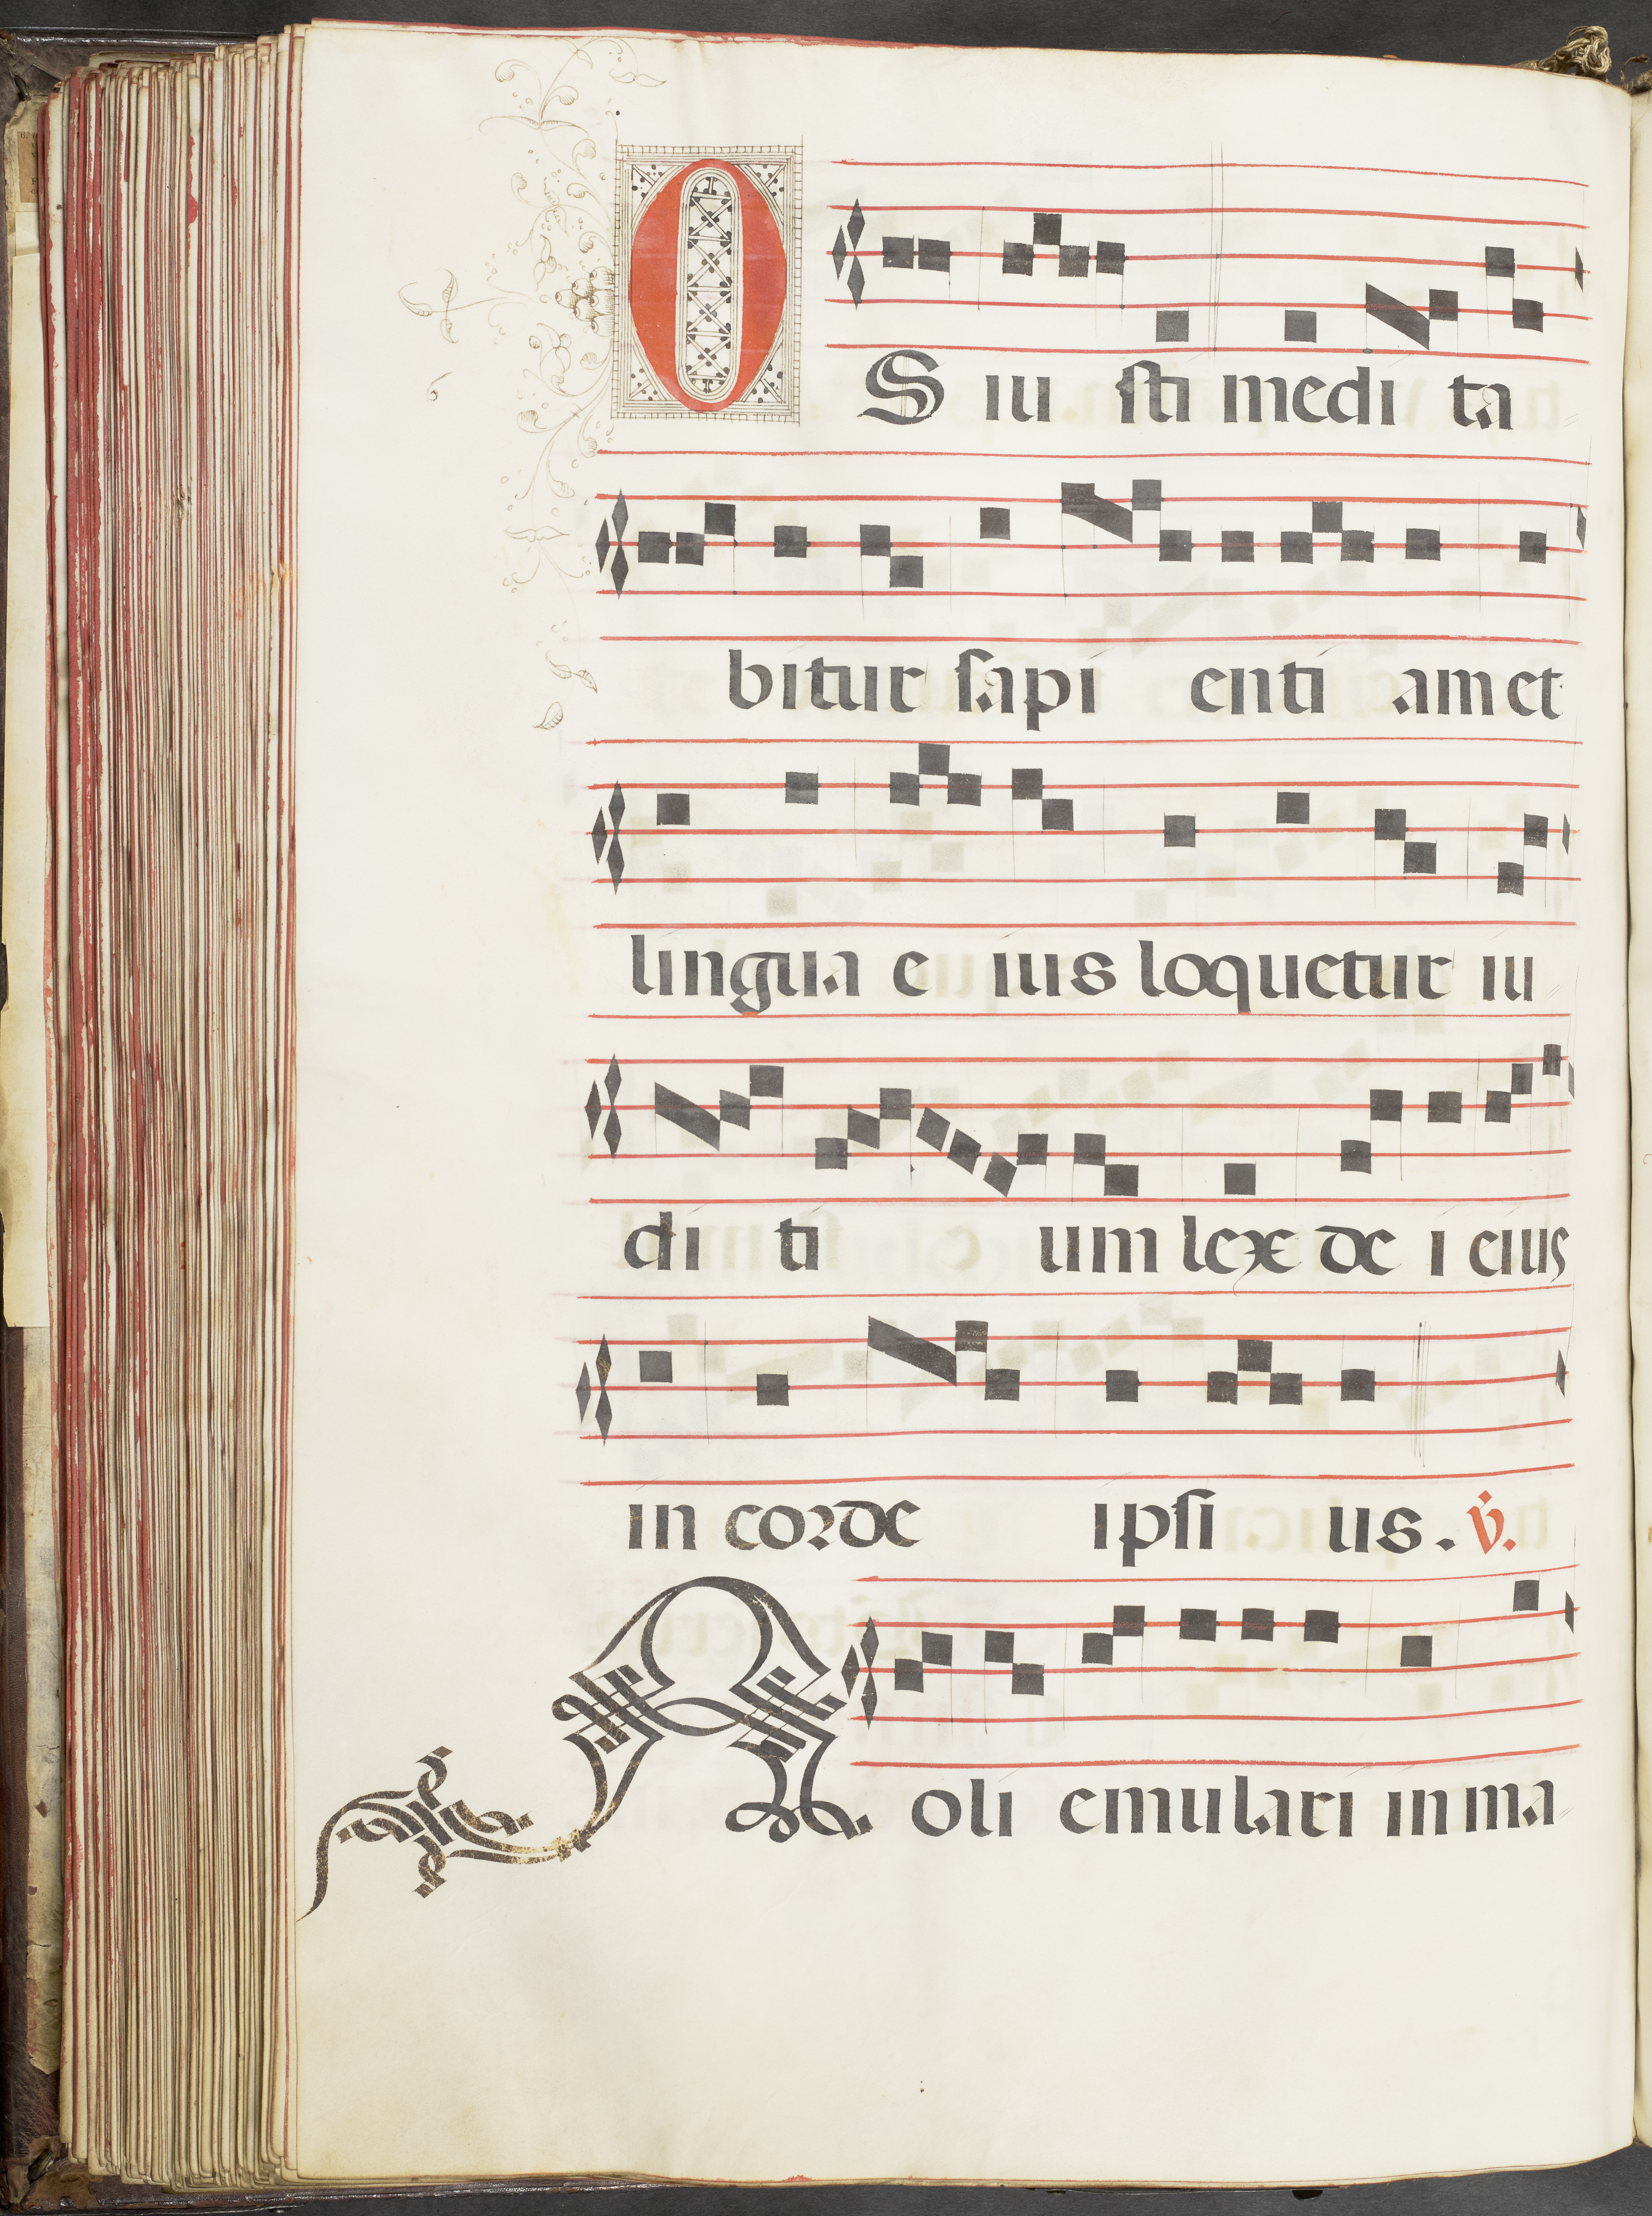 OS iu sti medi ta
bitur sapi enti am et
lingua e ius loquetur iu
di ti um lex de i eius
in corde ipsi us. v̇.
Noli emulari in ma